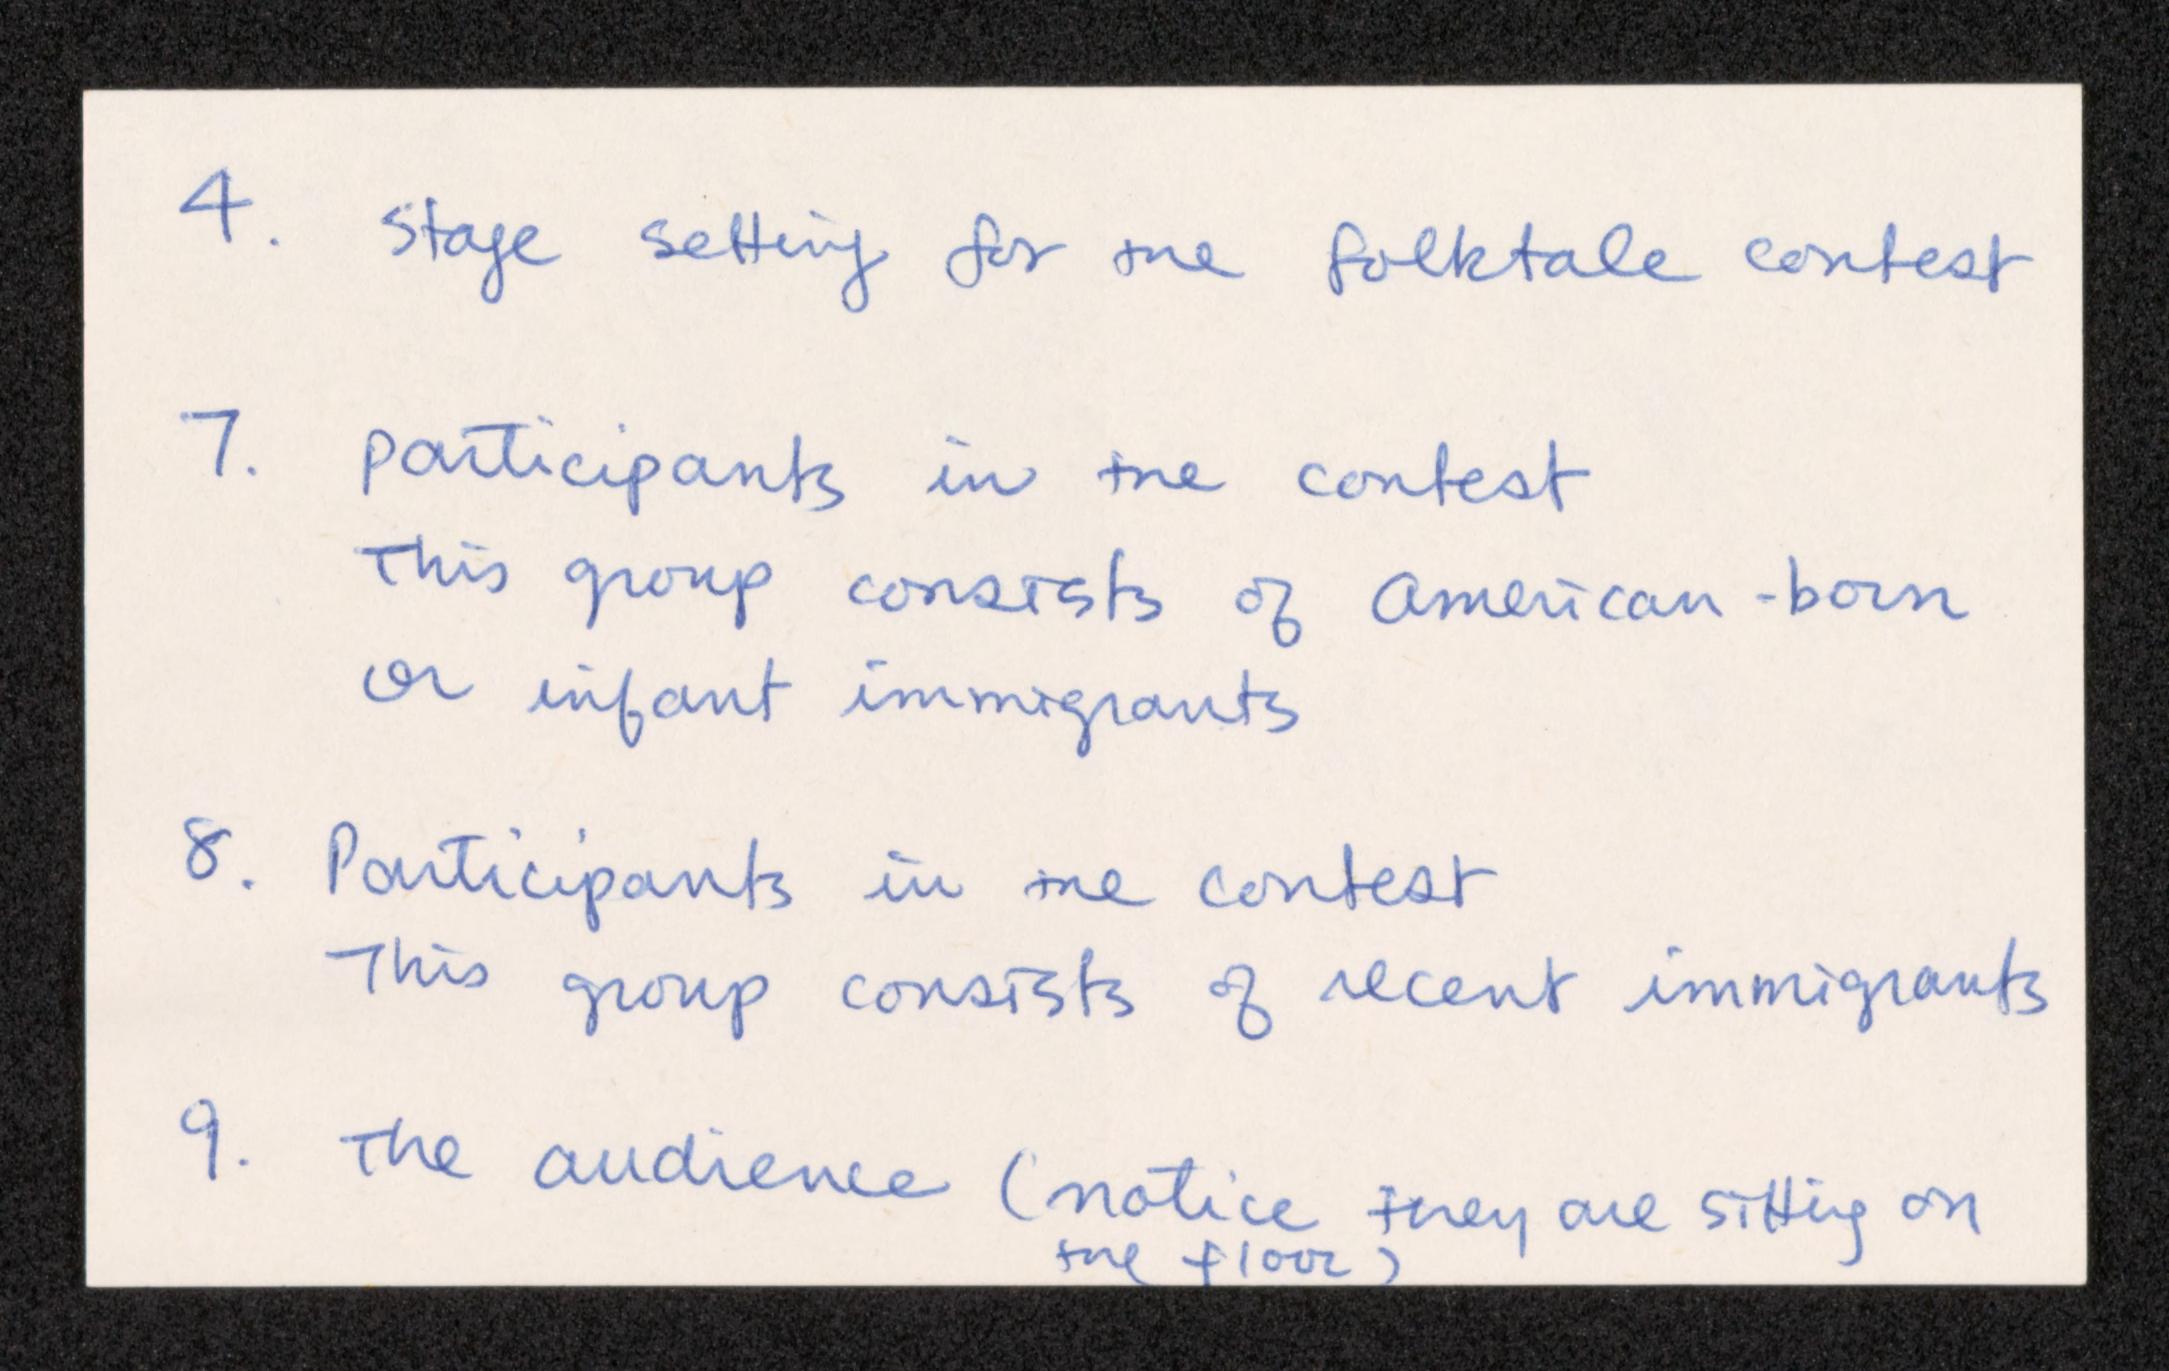 4. Stage setting for the folktale contest
7. participants in the contest
This group consists of American-born
or infant immigrants
8. Participants in the contest
This group consists of recent immigrants
9. The audience (notice they are sitting on
the floor)